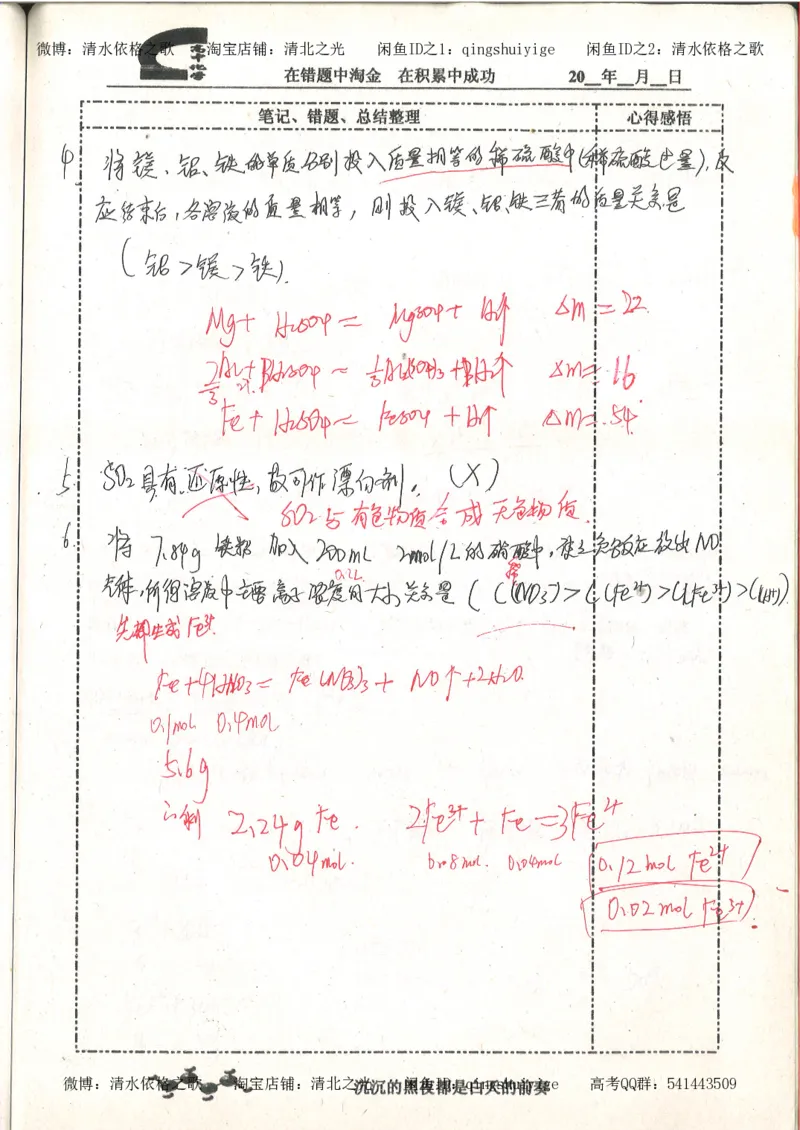 微博：清水依格之歌 淘宝店铺：清北之光 闲鱼ID之1：qingshuiyige 闲鱼ID之2：清水依格之歌
高中化学
在错题中淘金 在积累中成功 20__年__月__日
笔记、错题、总结整理 心得感悟
4. 将镁、铝、铁的单质分别投入质量相等的稀硫酸中(稀硫酸过量),反
应结束后,各溶液的质量相等,则投入镁、铝、铁三者的质量关系是
(铝>镁>铁).
Mg+ H₂SO₄ = MgSO₄+ H₂↑ Δm=22
⅔Al+H₂SO₄ = ⅓Al₂(SO₄)₃+H₂↑ Δm=16
Fe+H₂SO₄= FeSO₄+H₂↑ Δm=54
5. SO₂具有还原性,故可作漂白剂。(X)
SO₂与有色物质合成无色物质.
6. 将7.84g 铁粉加入200mL 2mol/L的硝酸中,使之负反应放出NO
0.2L 稀
气体,所得溶液中主要离子浓度的大小关系是( C(NO₃⁻)>C(Fe²⁺)>C(Fe³⁺)>C(H⁺))
先都生成Fe³⁺.
Fe+4HNO₃= Fe(NO₃)₃+ NO↑+2H₂O
0.1mol 0.4mol
5.6g
∴剩 2.24g Fe. 2Fe³⁺+ Fe=3Fe²⁺
0.04mol. 0.08mol. 0.04mol 0.12mol Fe²⁺
0.02mol Fe³⁺
沉沉的黑夜都是白天的前奏
微博：清水依格之歌 淘宝店铺：清北之光 闲鱼ID：qingshuiyige 高考QQ群：541443509